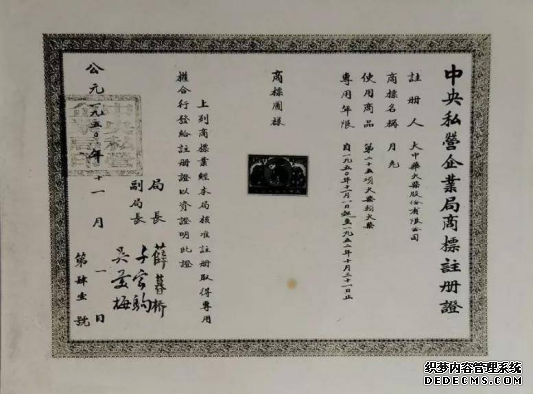 中央私營企業局商標註冊證
註冊人 大中華火柴股份有限公司
商標名稱 月光
使用商品 第二十五項火柴類火柴
專用年限 自一九五〇年十一月一日起至一九五二年十月三十一日止
商標圖樣
上列商標業經本局核准註冊取得專用
權合行發給註冊證以資證明此證
局長 薛暮橋
副局長 千家駒
吳羹梅
公元一九五〇年十一月一日
第肆壹號
织梦内容管理系统
DEDECMS.COM